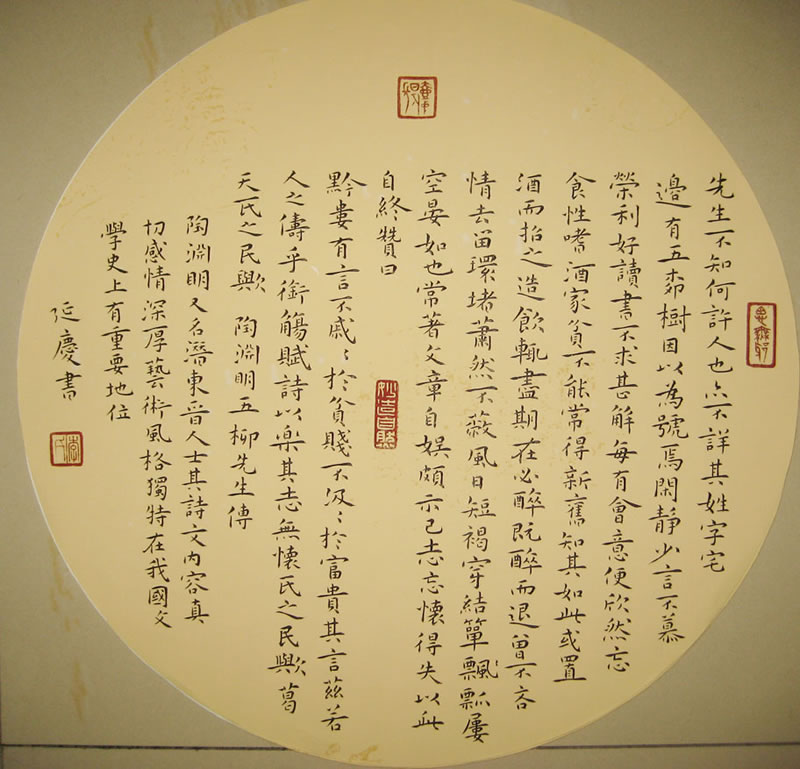 先生不知何許人也亦不詳其姓字宅
邊有五柳樹因以為號焉閑靜少言不慕
榮利好讀書不求甚解每有會意便欣然忘
食性嗜酒家貧不能常得新舊知其如此或置
酒而招之造飲輒盡期在必醉既醉而退曾不吝
情去留環堵蕭然不蔽風日短褐穿結簞飄瓢屢
空晏如也常著文章自娛頗示己志忘懷得失以此
自終贊曰
黔婁有言不戚〻於貧賤不汲〻於富貴其言茲若
人之儔乎銜觴賦詩以樂其志無懷氏之民歟葛
天氏之民歟 陶淵明五柳先生傳
陶淵明又名潛東晉人士其詩文內容真
切感情深厚藝術風格獨特在我國文
學史上有重要地位
延慶書